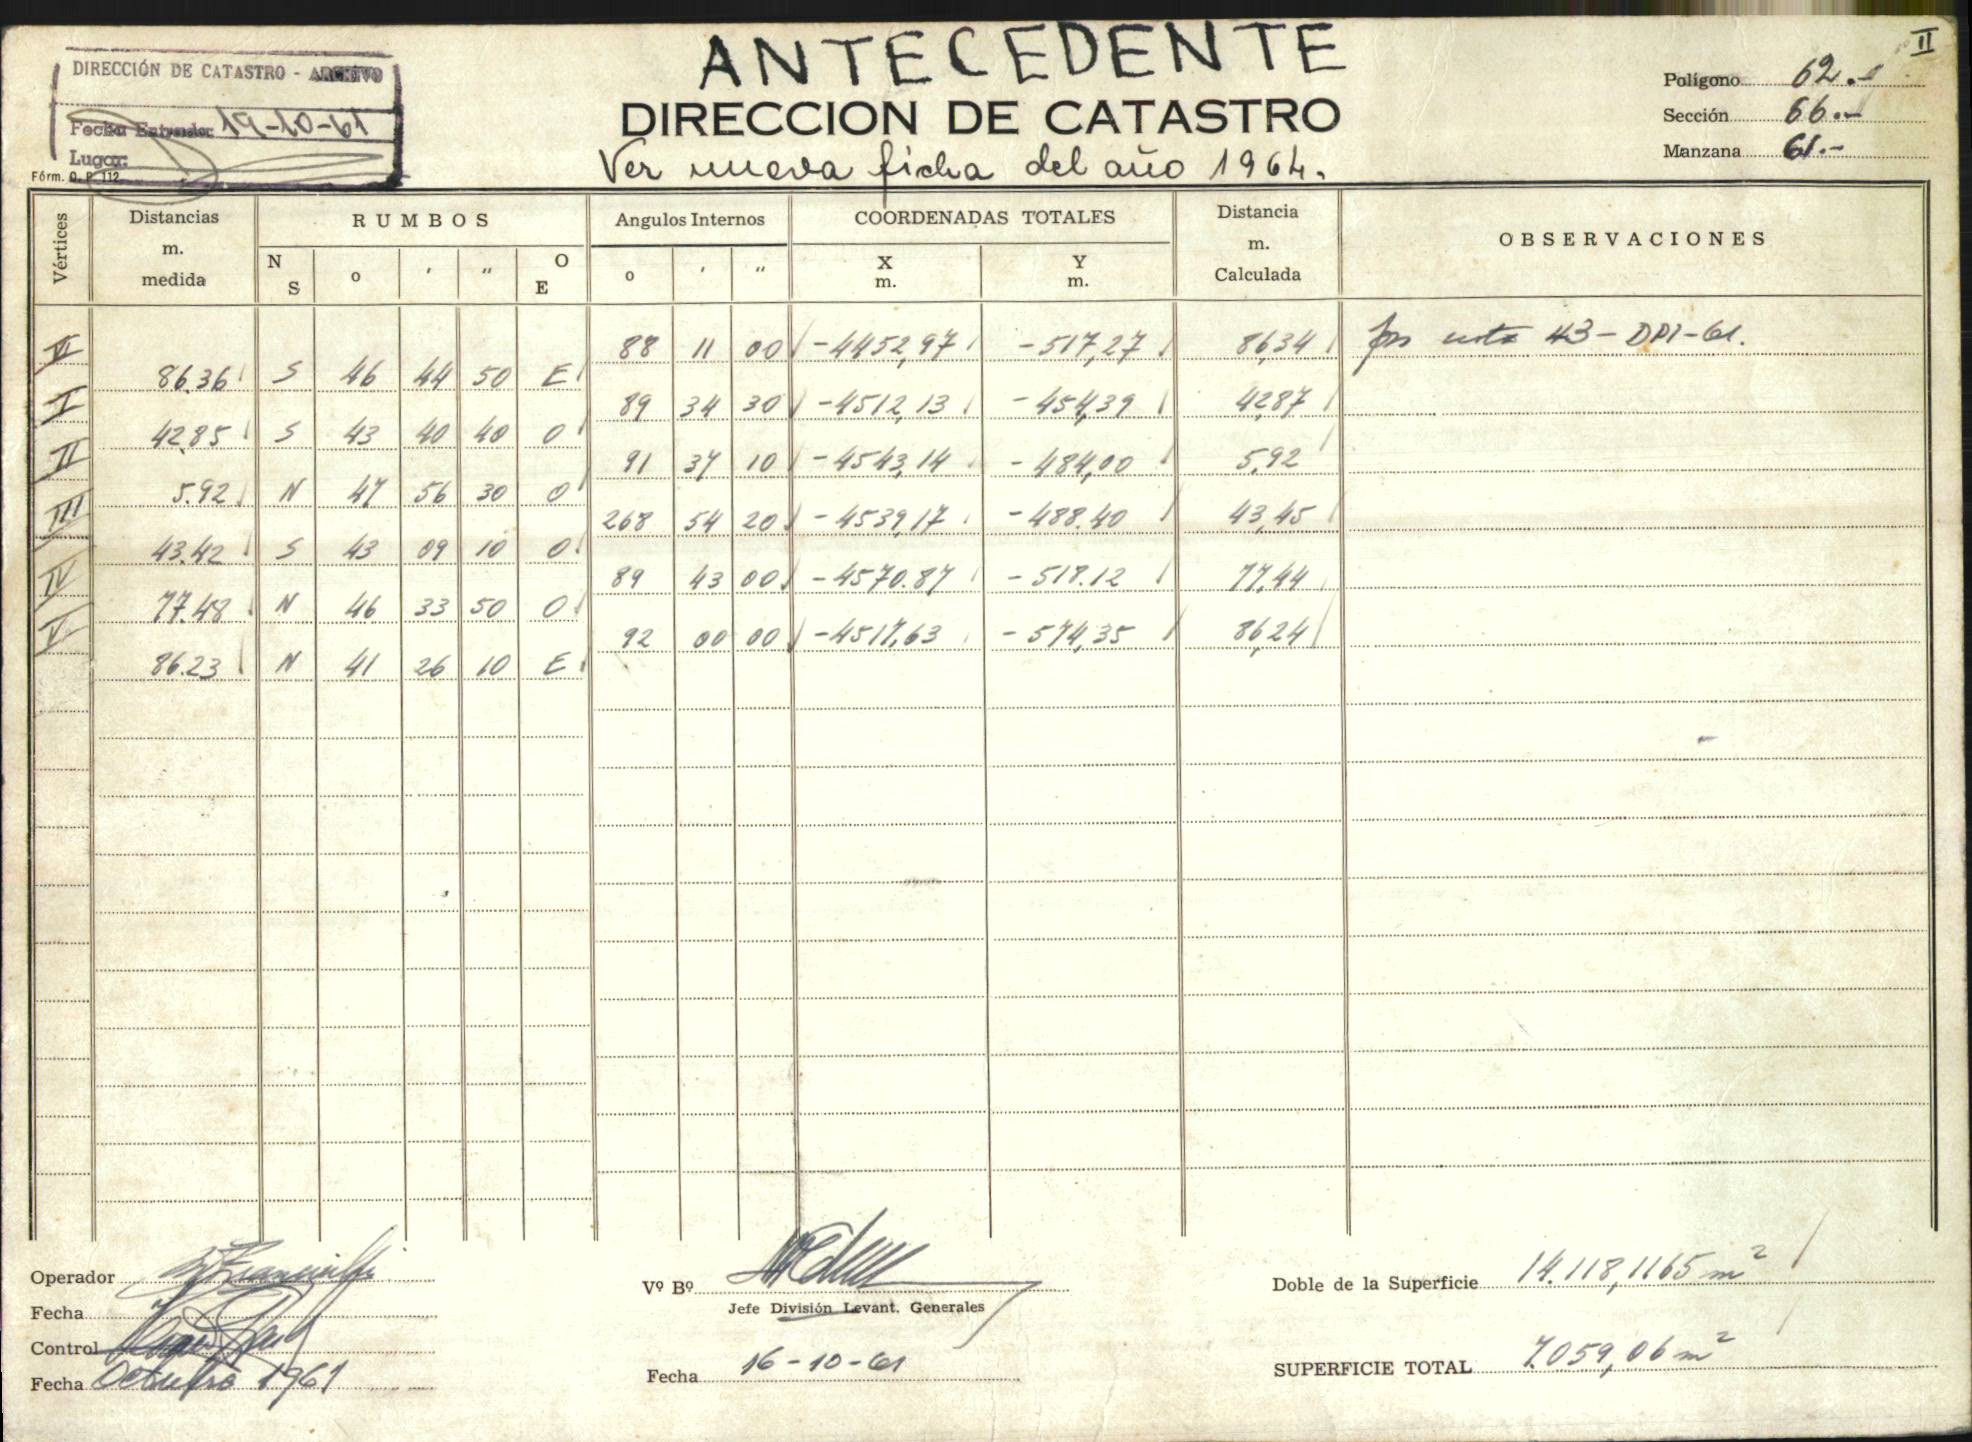 ANTECEDENTE
II
DIRECCIÓN DE CATASTRO - ARCHIVO
Fecha Entrada: 19-10-61
Lugar:
Fórm. O. P. 112
DIRECCION DE CATASTRO
Ver nueva ficha del año 1964.
Polígono 62.-
Sección 66.-
Manzana 61.-
Vértices
Distancias m. medida
RUMBOS
Angulos Internos
COORDENADAS TOTALES
Distancia m. Calculada
OBSERVACIONES
N S o ' " O E
o ' "
X m. Y m.
VI 88 11 00 -4452,97 -517,27 86,34 por nota 43-DPI-61.
86.36 S 46 44 50 E
I 89 34 30 -4512,13 -454,39 42,87
42,85 S 43 40 40 O
II 91 37 10 -4543,14 -484,00 5,92
5.92 N 47 56 30 O
III 268 54 20 -4539,17 -488.40 43,45
43.42 S 43 09 10 O
IV 89 43 00 -4570.87 -518.12 77,44
77.48 N 46 33 50 O
V 92 00 00 -4517,63 -574,35 86,24
86.23 N 41 26 10 E
Operador
Fecha
Control
Fecha Octubre 1961
Vº Bº
Jefe División Levant. Generales
Fecha 16-10-61
Doble de la Superficie 14.118,1165 m²
SUPERFICIE TOTAL 7.059,06 m²